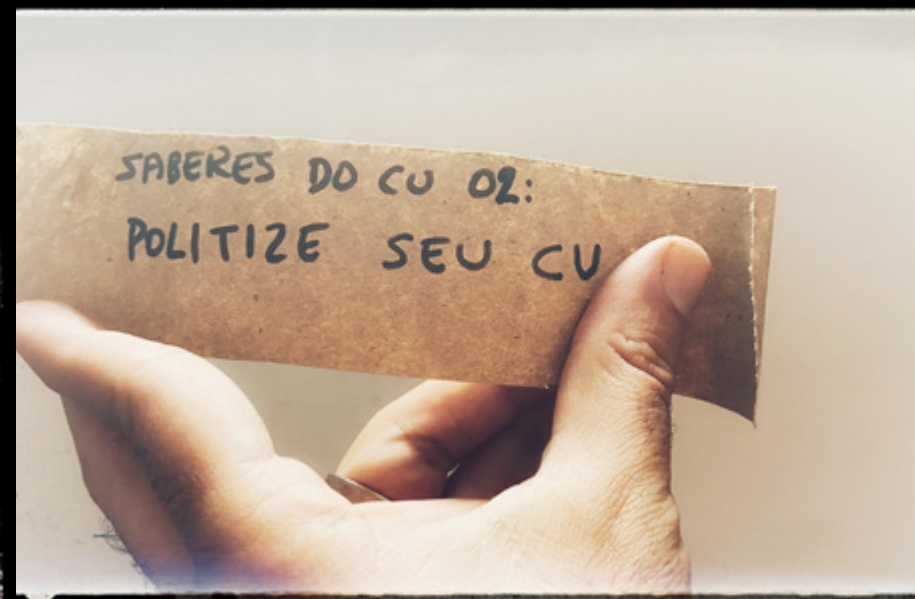 SABERES DO CU 02:
POLITIZE SEU CU